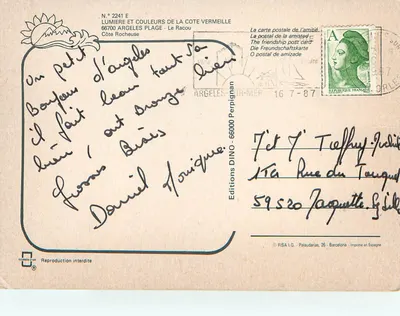 N.° 2241 E
LUMIERE ET COULEURS DE LA COTE VERMEILLE
66700 ARGELES PLAGE - Le Racou
Côte Rocheuse
La carte postale de l'amitié
La postal de la amistad
The friendship post card
Die Freundschaftskarte
O postal de amizade
A
ARGELES-SUR-MER 16-7-87
un petit
Bonjour d'argeles
il fait beau tout va
bien, ont bronze bien
Grosses Bises
Daniel Monique
Editions DINO - 66000 Perpignan
M et Mme
Rue du
59520
© FISA I.G. - Palaudarias, 26 - Barcelona - Imprimé en Espagne
Reproduction interdite